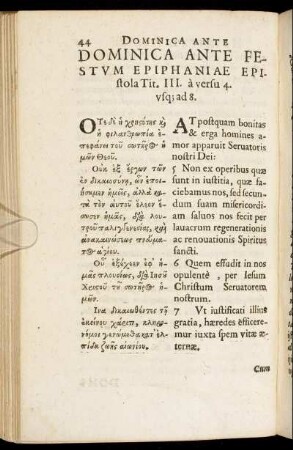 44 DOMINICA ANTE
DOMINICA ANTE FE-
STVM EPIPHANIAE EPI-
stola Tit. III. à versu 4.
vsq; ad 8.
ΟΤε δὲ ἡ χρηστότης κ̀
ἡ φιλανθρωπία ἐ-
πεφάνη τοῦ σωτῆρος ἡ-
μῶν Θεοῦ.
Οὐκ ἐξ ἔργων τῶν
ἐν δικαιοσύνῃ, ὧν ἐποι-
ήσαμεν ἡμεῖς, ἀλλὰ κατὰ
τὸν αὑτοῦ ἔλεον ἔ-
σωσεν ἡμᾶς, διὰ λου-
τροῦ παλιγγενεσίας, καὶ
ἀνακαινώσεως πνεύμα-
τος ἁγίου.
Οὗ ἐξέχεεν ἐφ' ἡ-
μᾶς πλουσίως, διὰ Ἰησοῦ
Χριστοῦ τοῦ σωτῆρος ἡ-
μῶν.
Ἵνα δικαιωθέντες τῇ
ἐκείνου χάριτι, κληρο-
νόμοι γενώμεθα κατ' ἐλ-
πίδα ζωῆς αἰωνίου.
AT postquam bonitas
& erga homines a-
mor apparuit Seruatoris
nostri Dei:
5 Non ex operibus quæ
sunt in iustitia, quæ fa-
ciebamus nos, sed secun-
dum suam misericordi-
am saluos nos fecit per
lauacrum regenerationis
ac renouationis Spiritus
sancti.
6 Quem effudit in nos
opulentè, per Iesum
Christum Seruatorem
nostrum.
7 Vt iustificati illius
gratia, hæredes efficere-
mur iuxta spem vitæ æ-
ternæ.
Cum